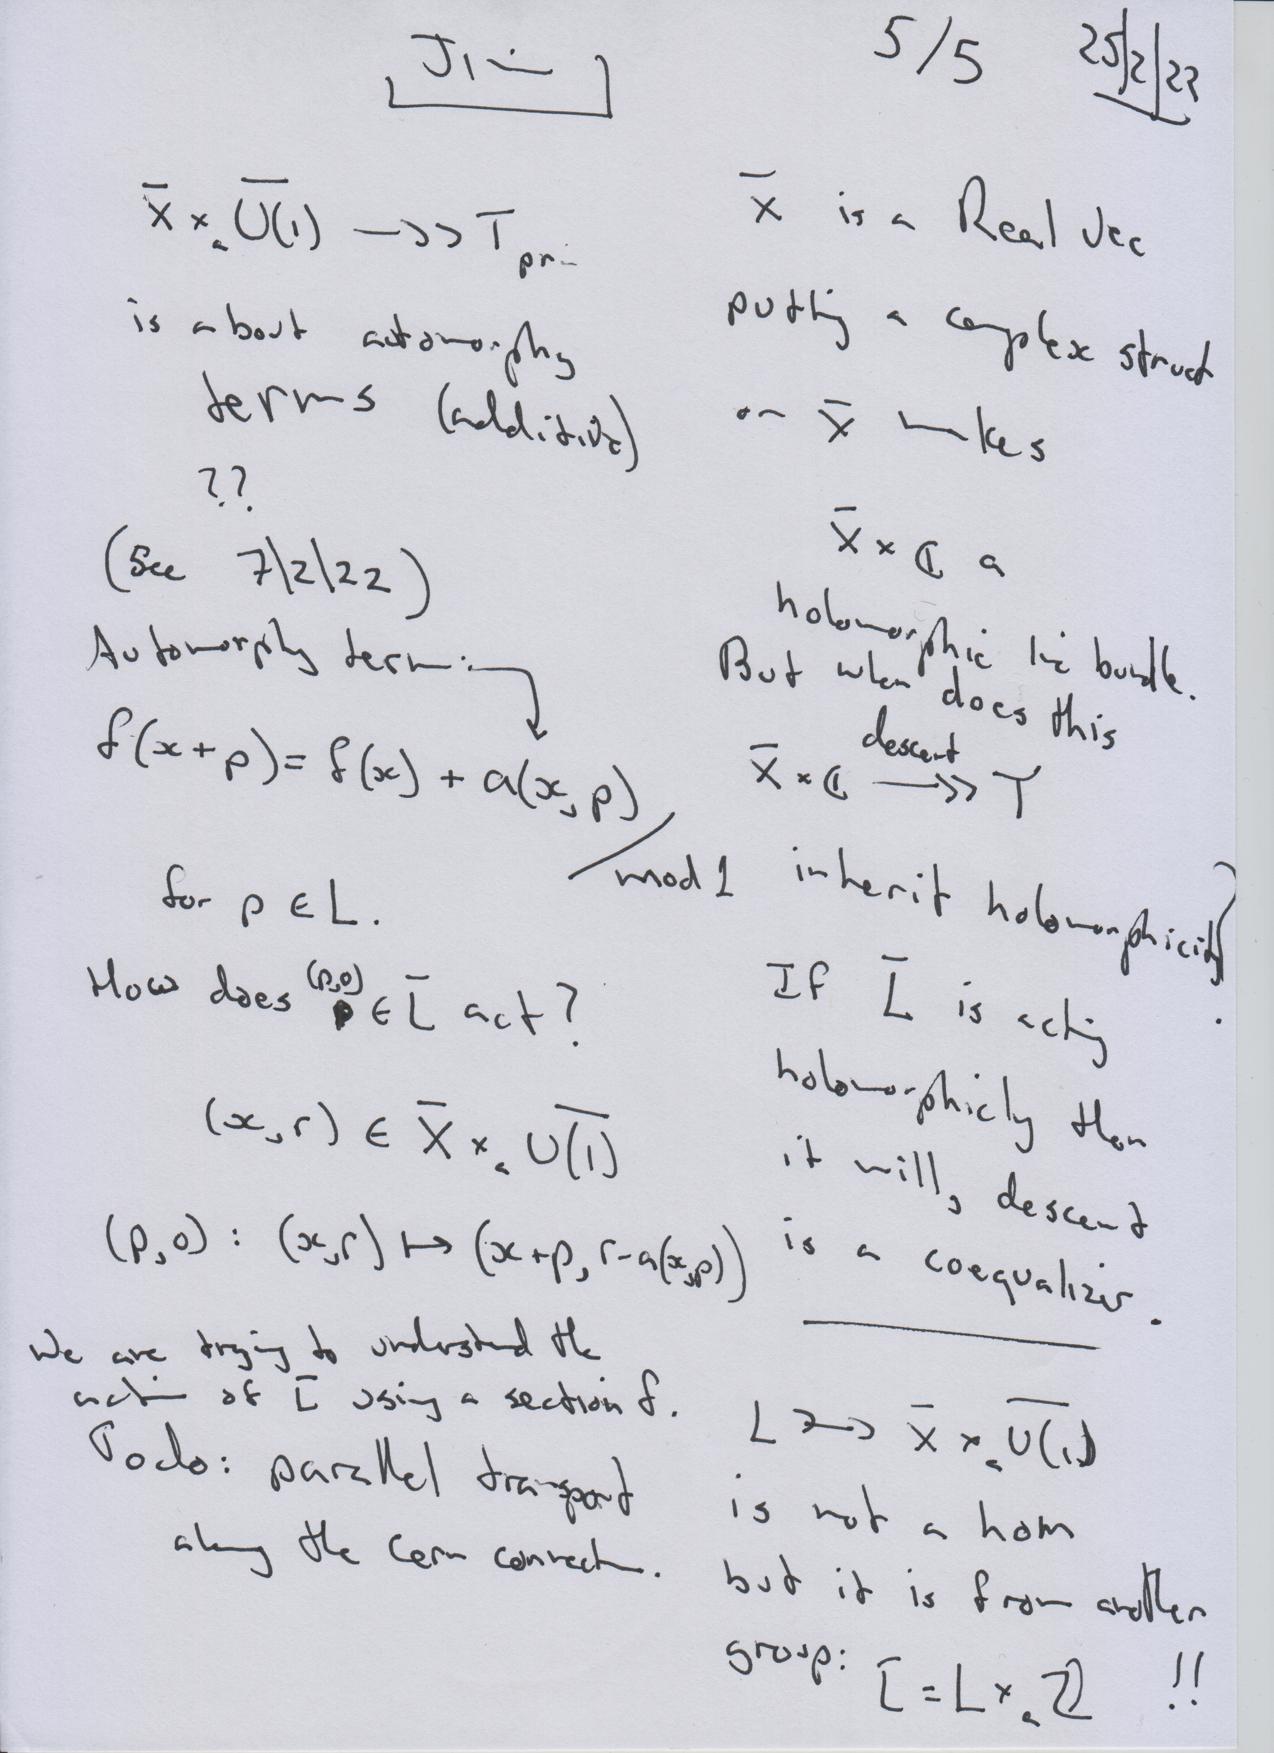 Jim
5/5
25/2/22
X̄ ×ₐ U̅(̅1̅)̅ ↠ T_prin
is about automorphy
terms (additive)
??
(See 7/2/22)
Automorphy term:
f(x+p) = f(x) + a(x,p) / mod 1
for p ∈ L.
How does (p,0) ∈ L̄ act?
(x,r) ∈ X̄ ×ₐ U̅(̅1̅)̅
(p,0) : (x,r) ↦ (x+p, r-a(x,p))
We are trying to understand the
action of L̄ using a section f.
Todo: parallel transport
along the Cern connection.
X̄ is a Real Vec
putting a complex struct
on X̄ makes
X̄ × ℂ a
holomorphic line bundle.
But when does this
X̄ × ℂ ↠ T
descent
inherit holomorphicity?
If L̄ is acting
holomorphicly then
it will, descent
is a coequalizer.
L ↣ X̄ ×ₐ U̅(̅1̅)̅
is not a hom
but it is from another
group: L̄ = L ×ₐ ℤ !!